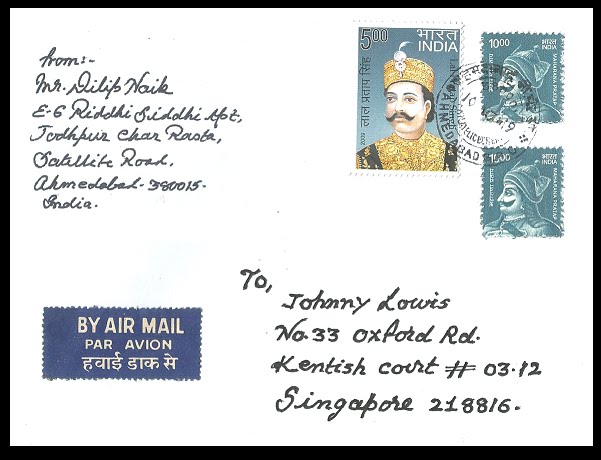 from:-
Mr. Dilip Naik
E-6 Riddhi Siddhi Apt,
Jodhpur Char Rasta,
Satellite Road,
Ahmedabad-380015-
India.
5.00 भारत
INDIA
लाल प्रताप सिंह
2009
10.00 भारत
INDIA
MAHARANA PRATAP
AHMEDABAD
10.00 भारत
INDIA
MAHARANA PRATAP
महाराणा प्रताप
To,
Johnny Lowis
No.33 Oxford Rd.
Kentish court # 03.12
Singapore 218816.
BY AIR MAIL
PAR AVION
हवाई डाक से